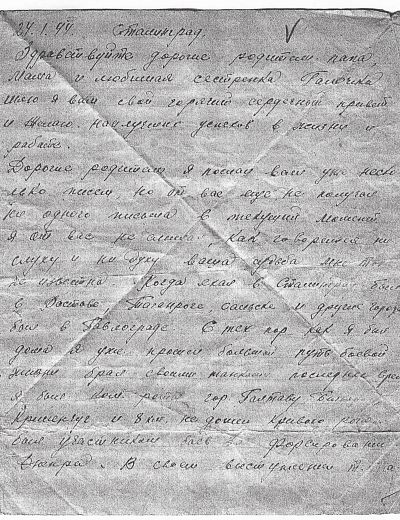 24.1.44 Сталинград.
Здравствуйте дорогие родители папа,
мама и любимая сестренка Галочка
шлю я вам свой горячий сердечный привет
и желаю наилучших успехов в жизни и
работе.
Дорогие родители я послал вам уже неско
лько писем, но от вас еще не получал
ни одного письма в текущий момент
я от вас не слышал, как говорится ни
слуху и ни духу ваша судьба мне
не известна. Когда ехал в Сталинград был
в Ростове, Таганроге, Сальске и других города
был в Павлограде. С тех пор как я был
дома я уже прошел большой путь боевой
жизни брал своими танками последнее время
я был ком. роты гор. Полтаву
Кременчуг и 8 км. не дошел Кривого рога
был участником форсирования
Днепра. В своем выступлении т.